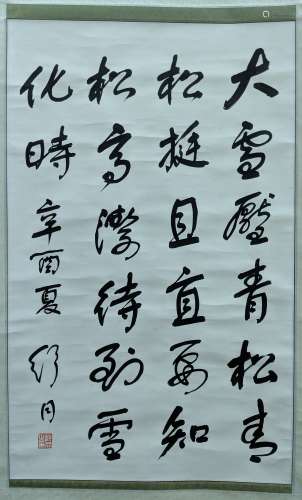 大雪壓青松青
松挺且直要知
松高潔待到雪
化時 辛酉夏 舒同